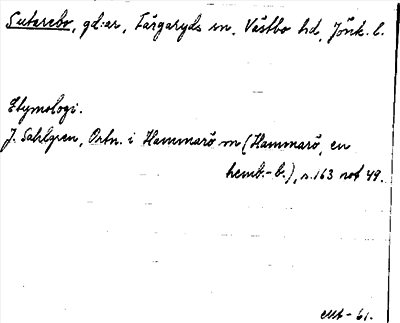 Sutarebo, gd:ar, Färgaryds sn, Västbo hd, Jönk. l.
Etymologi.
J. Sahlgren, Ortn. i Hammarö sn (Hammarö, en
hemb.-b.), s. 163 not 49.
-61.